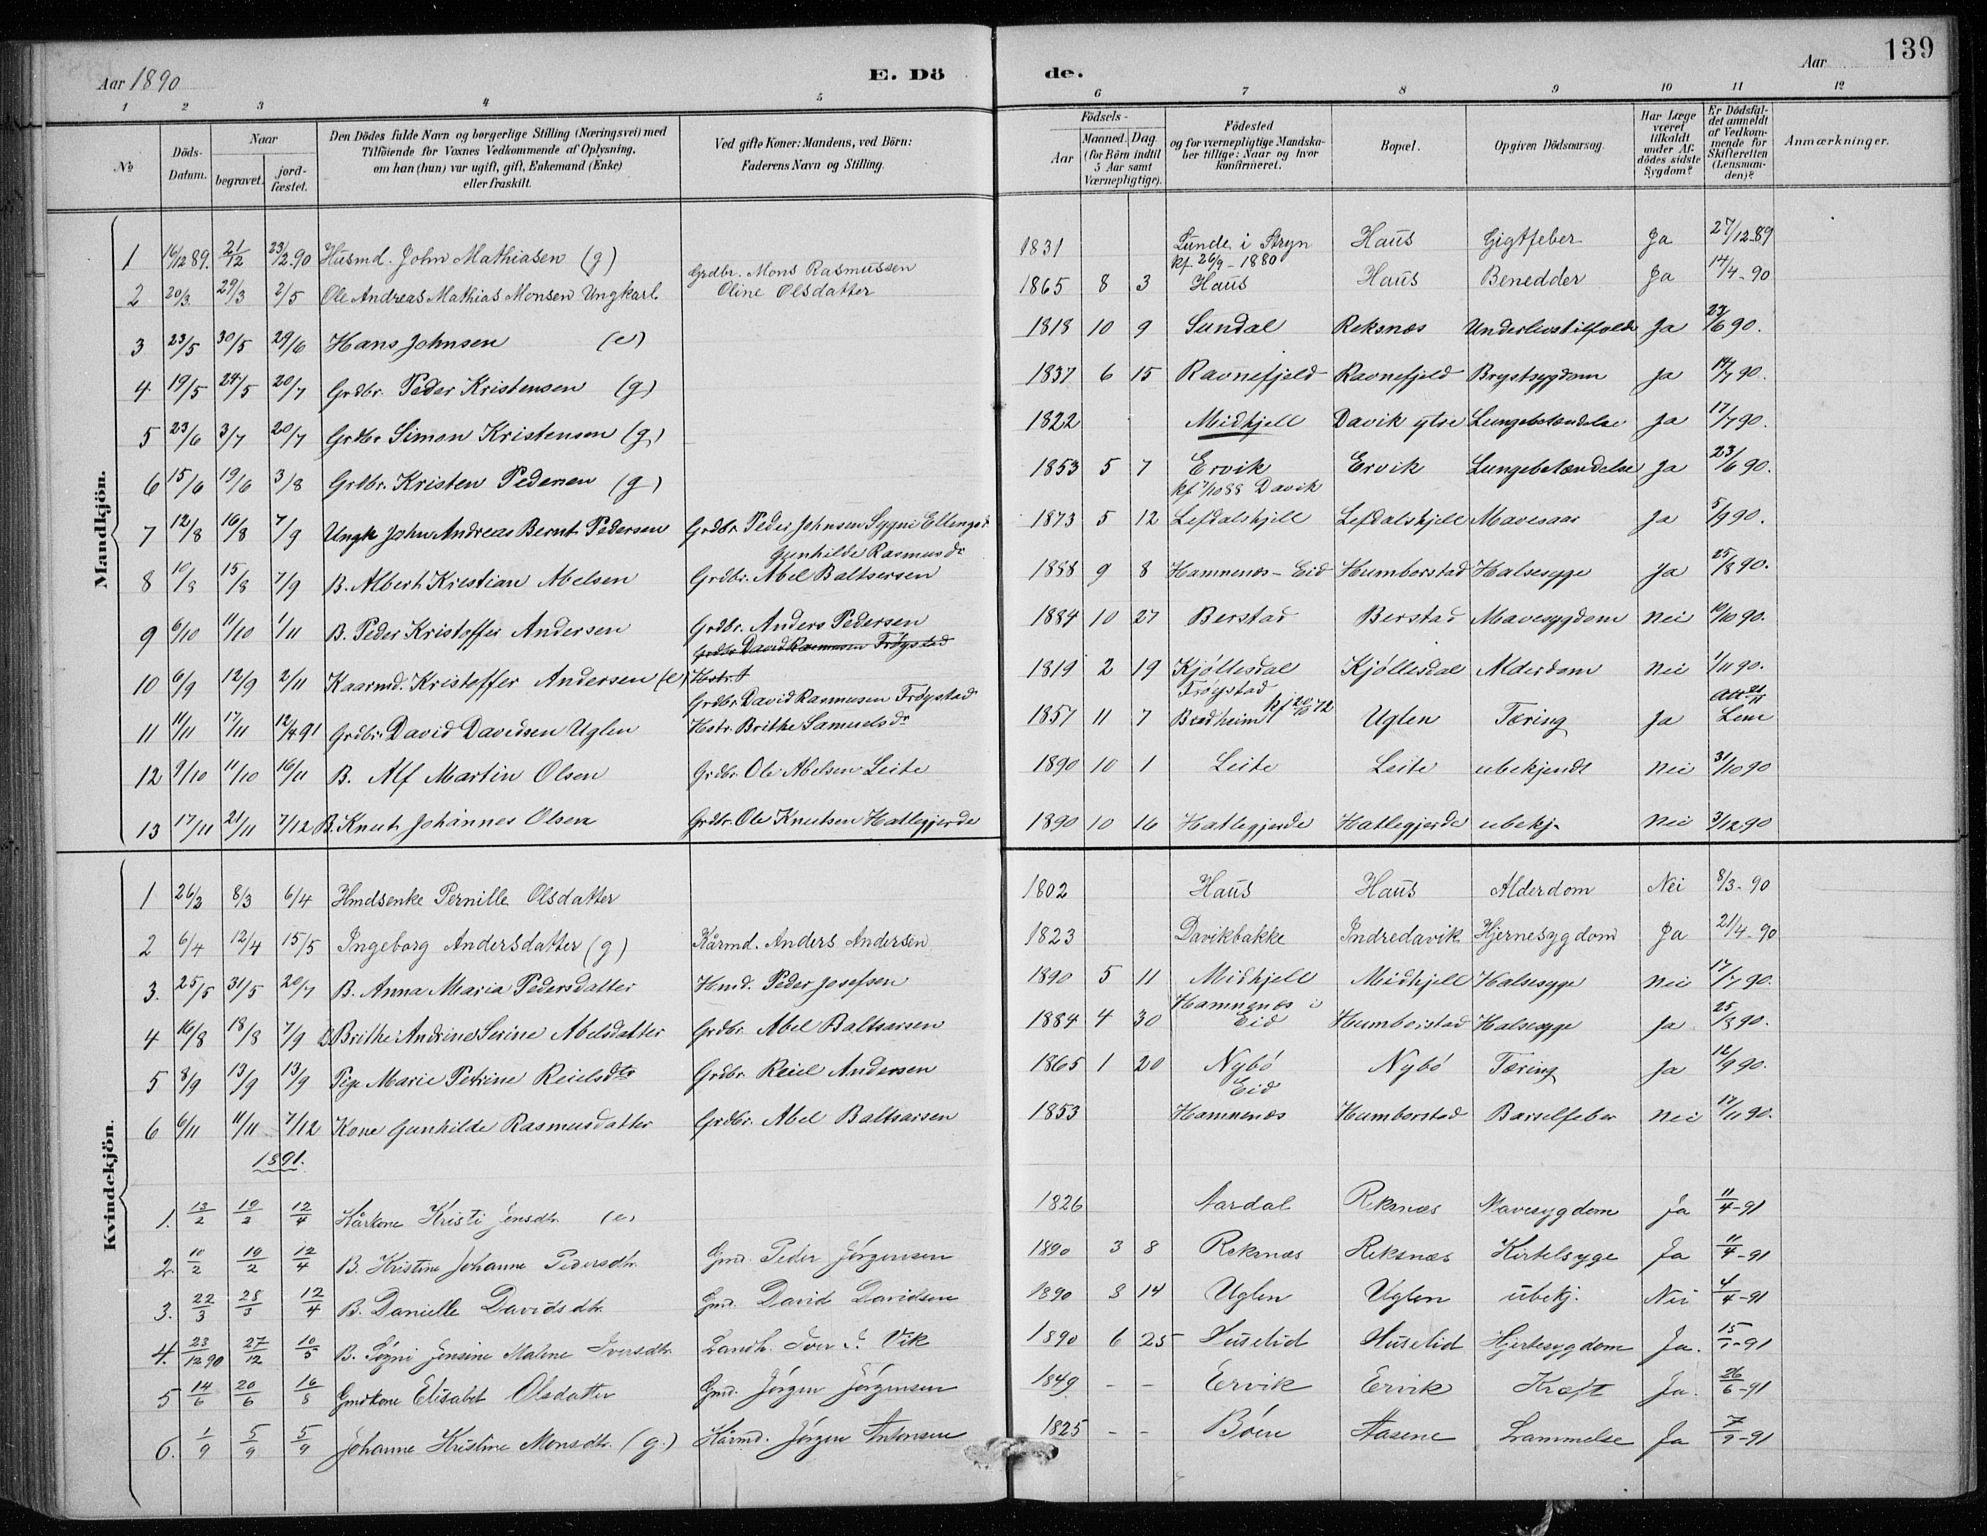 139
Aar 1890
E. Dö
de.
Aar
1 2 3 4 5 6 7 8 9 10 11 12
№
Döds-Datum.
Naar
begravet.
jord-fæstet.
Den Dödes fulde Navn og borgerlige Stilling (Næringsvei) med
Tilföiende for Voxnes Vedkommende af Oplysning,
om han (hun) var ugift, gift, Enkemand (Enke)
eller fraskilt.
Ved gifte Koner: Mandens, ved Börn:
Faderens Navn og Stilling.
Födsels-
Aar
Maaned. Dag
(for Börn indtil
5 Aar samt
Værnepligtige).
Födested
og for værnepligtige Mandska-
ber tillige: Naar og hvor
konfirmeret.
Bopæl.
Opgiven Dödsaarsag.
Har Læge
været
tilkaldt
under Af-
dödes sidste
Sygdom?
Er Dödsfal-
det anmeldt
af Vedkom-
mende for
Skifteretten
(Lensman-
den)?
Anmærkninger.
Mandkjön.
1 16/12 89. 21/12 23/2.90 Husmd. John Mathiasen (g) 1831 Lunde i Stryn Haus Gigtfeber Ja 27/12-89
Grdbr. Mons Rasmussen kf. 26/9-1880
2 20/3 29/3 2/5 Ole Andreas Mathias Monsen Ungkarl Oline Olsdatter 1865 8 3 Haus Haus Benedder Ja 14/4-90
3 23/5 30/5 29/6 Hans Johnsen (e) 1818 10 9 Sundal Reksnæs Underlivstilfælde Ja 27/6 90.
4 19/5 24/5 20/7 Grdbr. Peder Kristensen (g) 1837 6 15 Ravnefjeld Ravnefjeld Brystsygdom Ja 14/7 90.
5 23/6 3/7 20/7 Grdbr Simon Kristensen (g) 1822 Midhjell Davik ytre Lungebetændelse Ja 17/7 90.
6 15/6 19/6 3/8 Grdbr. Kristen Pedersen (g) 1853 5 7 Ervik Ervik Lungebetændelse Ja 23/6 90.
kf 7/10 88 Davik
7 12/8 16/8 7/9 Ungk John Andreas Bernt Pedersen Grdbr Peder Johnsen Sygni Ellingsd. 1873 5 12 Lefdalshjell Lefdalshjell Mavesaar Ja 5/9 90.
Gunhilde Rasmusdr
8 10/8 15/8 7/9 B. Albert Kristian Abelsen Grdbr. Abel Baltsersen 1888 9 8 Hamnenes-Eid Humborstad Halsesyge Ja 25/8 90.
9 6/10 11/10 1/11 B. Peder Kristoffer Andersen Grdbr. Anders Pedersen 1884 10 27 Berstad Berstad Mavesygdom Nei 10/10 90.
Grdbr David Rasmusen Frøystad
10 6/9 12/9 2/11 Kaarmd. Kristoffer Andersen (e) Hstr. 1819 2 19 Kjöllesdal Kjöllesdal Alderdom Nei 1/11 90.
Grdbr. David Rasmusen Frøystad Frøystad
11 11/11 17/11 12/4 91 Grdbr. David Davidsen Uglen Hstr. Brithe Samuelsdr 1857 11 7 Bredheim Uglen Tæring Ja Len
12 9/10 11/10 16/11 B. Alf Martin Olsen Grdbr. Ole Abelsen Leite 1890 10 1 Leite Leite ubekjendt Nei 31/10 90
13 17/11 21/11 7/12 B. Knut Johannes Olsen Grdbr. Ole Knutsen Hatlegjerde 1890 10 16 Hatlegjerde Hatlegjerde ubekj. Nei 3/12 90
Kvindekjön.
1 26/2 8/3 6/4 Hmdsenke Pernille Olsdatter 1802 Haus Haus Alderdom Nei 8/3-90
2 6/4 12/4 15/5 Ingeborg Andersdatter (g) Kårmd. Anders Andersen 1823 Davikbakke Indredavik Hjernesygdom Ja 21/4-90
3. 25/5 31/5 20/7 B. Anna Maria Pedersdatter Hmd. Peder Josefsen 1890 5 11 Midhjell Midhjell Halsesyge Nei 17/7 90.
4 16/8 18/8 7/9 B Brithe Andrine Serine Abelsdatter Grdbr. Abel Baltsarsen 1884 4 30 Hamnenes i Eid Humborstad Halsesyge Ja 25/8 90.
5 8/9 13/9 13/9 Pige Marie Petrine Reielsdtr Grdbr. Reiel Andersen 1865 1 20 Nybö Nybö Tæring Ja 12/9 90.
6 6/11 11/11 7/12 Kone Gunhilde Rasmusdatter Grdbr. Abel Baltsarsen 1853 Eid Hamnenæs Humborstad Barselfeber Nei 17/11 90.
1891.
1. 13/2 19/2 12/4 Kårkone Kristi Jensdtr. (e) 1826 Aardal Reksnæs Mavesygdom Ja 11/4-91
2. 10/2 19/2 12/4 B. Kristine Johanne Pedersdtr. Gmd. Peder Jörgensen 1890 3 8 Reksnæs Reksnæs Kirtelsyge Ja 11/4-91
3. 22/3 28/3 12/4 B. Danielle Davidsdtr. Gmd. David Davidsen 1890 8 14 Uglen Uglen ubekj. Nei 4/4-91
4. 23/12 90 27/12 10/5 B. Søgni Jensine Malene Iversdtr. Landh. Iver J. Vik 1890 6 25 Huselid Huselid Hjertesygdom Ja. 15/1-91
5 14/6 20/6 16/8 Gmdkone Elisabet Olsdatter Gmd. Jörgen Jörgensen 1849 - - Ervik Ervik Kræft Ja. 26/6-91
6. 1/9 5/9 5/9 Johanne Kristine Monsdtr. (g.) Kårmd. Jörgen Antonsen 1825 - - Böen Aasene Lammelse Ja 7/9-91